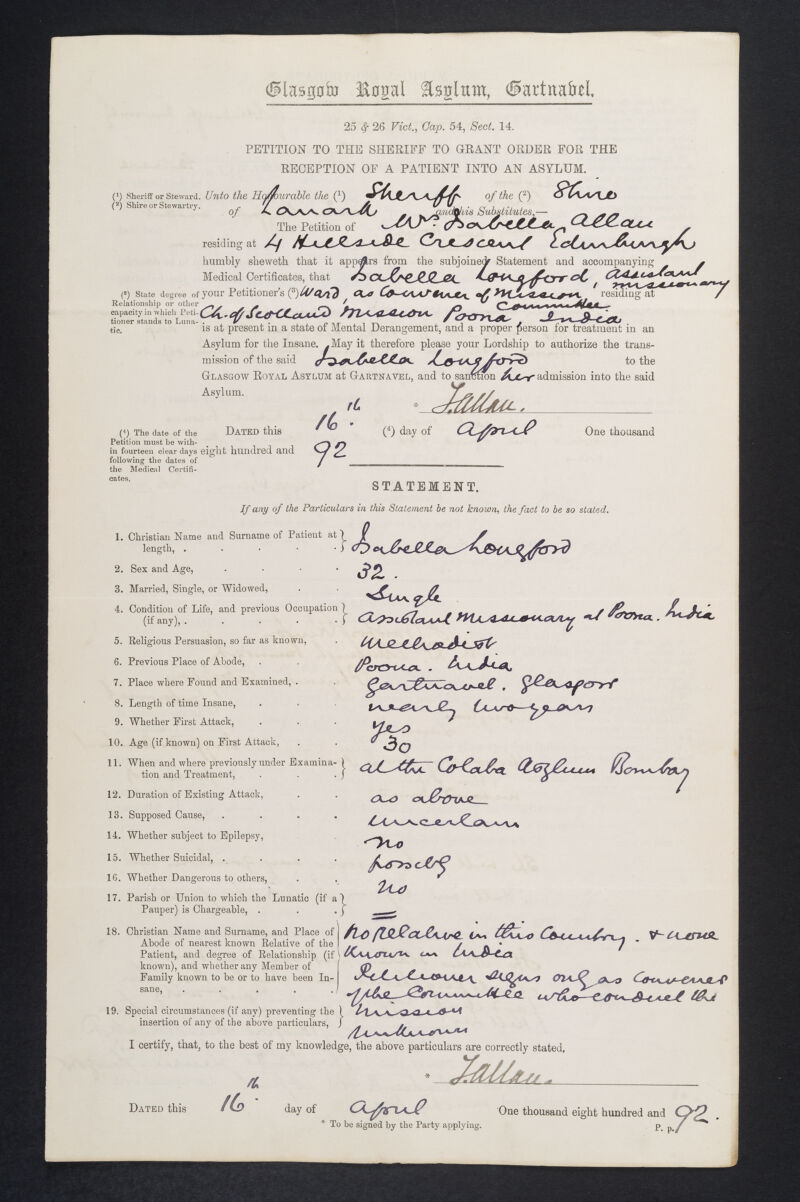 Glasgow Royal Asylum, Gartnavel.
25 & 26 Vict., Cap. 54, Sect. 14.
PETITION TO THE SHERIFF TO GRANT ORDER FOR THE
RECEPTION OF A PATIENT INTO AN ASYLUM.
(1) Sheriff or Steward.
(2) Shire or Stewartry.
Unto the Honourable the (1) Sheriff of the (2) Shire
of Lanark and his Substitutes,—
The Petition of Mrs. Isabella Allan
residing at 4 Hillside Crescent Edinburgh
humbly sheweth that it appears from the subjoined Statement and accompanying
Medical Certificates, that Isabella Longford, assistant missionary
(3) State degree of
Relationship or other
capacity in which Peti-
tioner stands to Luna-
tic.
your Petitioner's (3) Ward, as Convener of Mission Committee residing at
Ch. of Scotland Mission Poona India
is at present in a state of Mental Derangement, and a proper person for treatment in an
Asylum for the Insane. May it therefore please your Lordship to authorize the trans-
mission of the said Isabella Longford to the
GLASGOW ROYAL ASYLUM at GARTNAVEL, and to sanction her admission into the said
Asylum.
* I. Allan.
(4) The date of the
Petition must be with-
in fourteen clear days
following the dates of
the Medical Certifi-
cates.
DATED this 16th. (4) day of April One thousand
eight hundred and 92
STATEMENT.
If any of the Particulars in this Statement be not known, the fact to be so stated.
1. Christian Name and Surname of Patient at length, . Isabella Longford
2. Sex and Age, 32.
3. Married, Single, or Widowed, Single
4. Condition of Life, and previous Occupation (if any), . assistant missionary at Poona. India
5. Religious Persuasion, so far as known, Methodist
6. Previous Place of Abode, . Poona. India
7. Place where Found and Examined, . Gartnavel. Glasgow
8. Length of time Insane, nearly two years
9. Whether First Attack, yes
10. Age (if known) on First Attack, 30
11. When and where previously under Examina-tion and Treatment, at the Colaba Asylum Bombay
12. Duration of Existing Attack, as above
13. Supposed Cause, uncertain
14. Whether subject to Epilepsy, no
15. Whether Suicidal, . possibly
16. Whether Dangerous to others, no
17. Parish or Union to which the Lunatic (if a Pauper) is Chargeable, . =
18. Christian Name and Surname, and Place of
Abode of nearest known Relative of the
Patient, and degree of Relationship (if
known), and whether any Member of
Family known to be or to have been In-
sane,
No relative in this Country. & none
known in India
Petitioner signs only as Convener
of the Committee who conduct the
Mission
19. Special circumstances (if any) preventing the
insertion of any of the above particulars,
Unknown
I certify, that, to the best of my knowledge, the above particulars are correctly stated,
* I. Allan.
DATED this 16th. day of April One thousand eight hundred and 92.
* To be signed by the Party applying.
P. p.